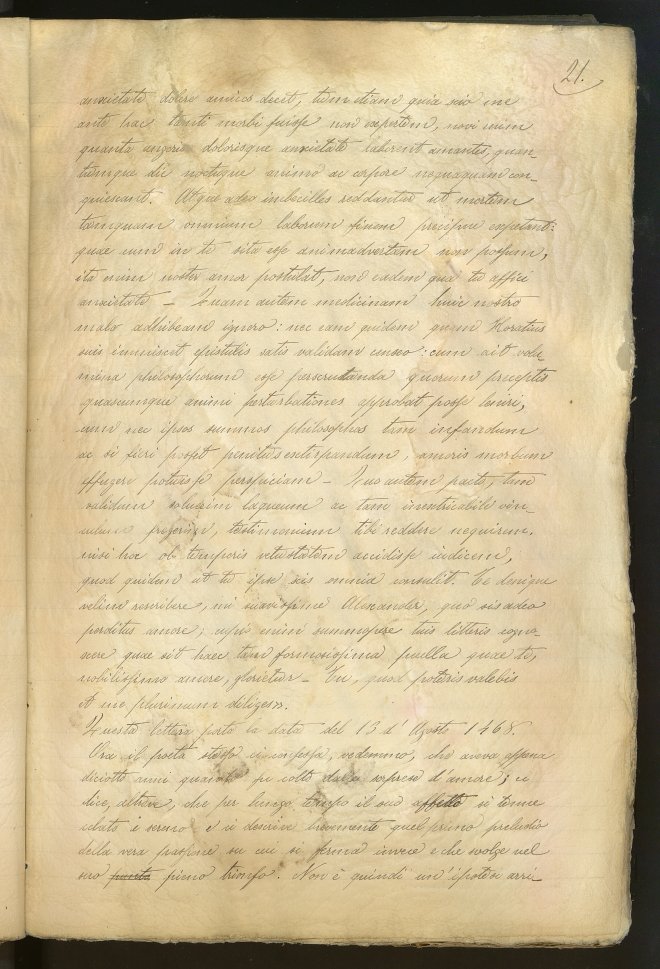 21.
anxietate dolere amicos decet, tum etiam quia scio me
ante hac tanti morbi fuisse non expertem, novi enim
quanta angoris dolorisque anxietate laborent amantes, quan-
tumque die noctuque animo ac corpore nequaquam con-
quiescunt. Atque adeo imbecilles redduntur ut mortem
tamquam omnium laborum finem precipue expetant:
quae cum in te sita esse animadvertam non possum,
ita enim noster amor postulat, non eadem qua tu affici
anxietate – Quam autem medicinam huic nostro
malo adhibeam ignoro: nec eam quidem quam Horatius
suis immiscet epistulis satis validam censeo: cum ait volu-
mina philosophorum esse perscrutanda quorum preceptis
quascumque animi perturbationes approbat posse leniri,
cum nec ipsos summos philosophos tam infandum
ac si fieri posset penitus exstirpandum, amoris morbum
effugere potuisse perspiciam – Quo autem pacto, tam
validum solverim laqueum ac tam inextricabile vin-
testimonium tibi reddere nequirem,
nisi hoc ob temporis vetustatem accidisse iudicem,
quod quidem ut tu ipse scis omnia consulit. Te denique
velim rescribere, mi suavissime Alexander, quo sis adeo
perditus amore; cupio enim summopere tuis litteris cogno-
scere quae sit haec tam formosissima puella quae te,
nobilissimo amore, glorietur – Tu, quod poteris valebis
et me plurimum diliges».
Questa lettera porta la data del 13 d' Agosto 1468.
Ora il poeta stesso ci confessa, vedemmo, che aveva appena
diciotto anni quando fu colto dalla sorpresa d'amore; ci
dice, altrove, che per lungo tempo il suo affetto si tenne
celato e sereno e ci descrive brevemente quel primo preludio
della vera passione su cui si ferma invece e che svolge nel
suo pieno trionfo. Non è quindi un' ipotesi arri-